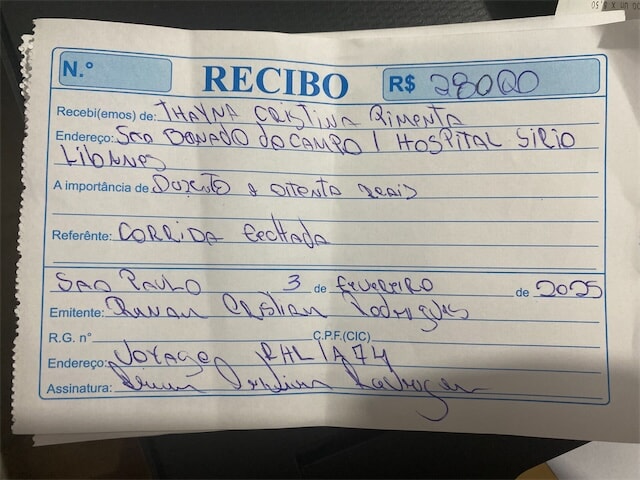 N.º RECIBO R$ 28000
Recebi(emos) de: THAYNA CRISTINA PIMENTA
Endereço: SÃO BONADO DO CAMPO / HOSPITAL SÍRIO
LIBANNES
A importância de DUZENTO e OITENTA REAIS
Referênte: CORRIDA FECHADA
SAO PAULO 3 de FEVEREIRO de 2025
Emitente: Renan Cristian Rodrigues
R.G. nº C.P.F.(CIC)
Endereço: VOYAGE RHL1A74
Assinatura: Renan Cristian Rodrigues